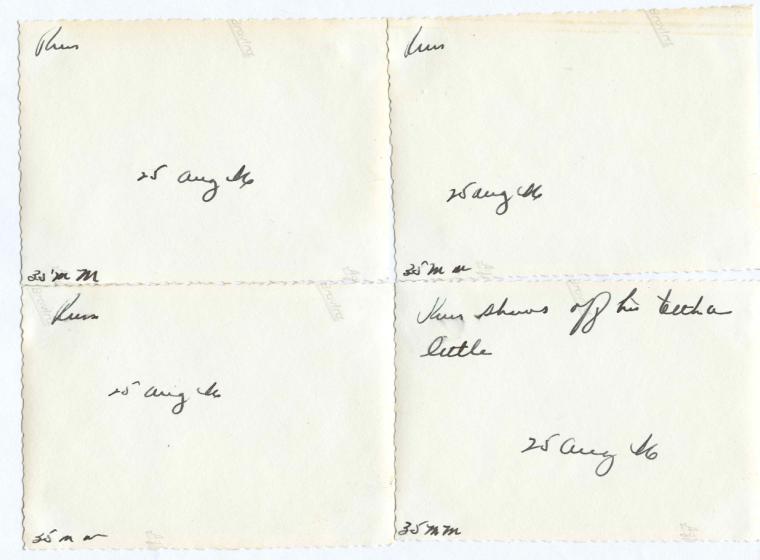 25 Aug 46
35 MM
25 Aug 46
35 MM
25 Aug 46
35 MM
shows off his teeth a
little
25 Aug 46
35 MM